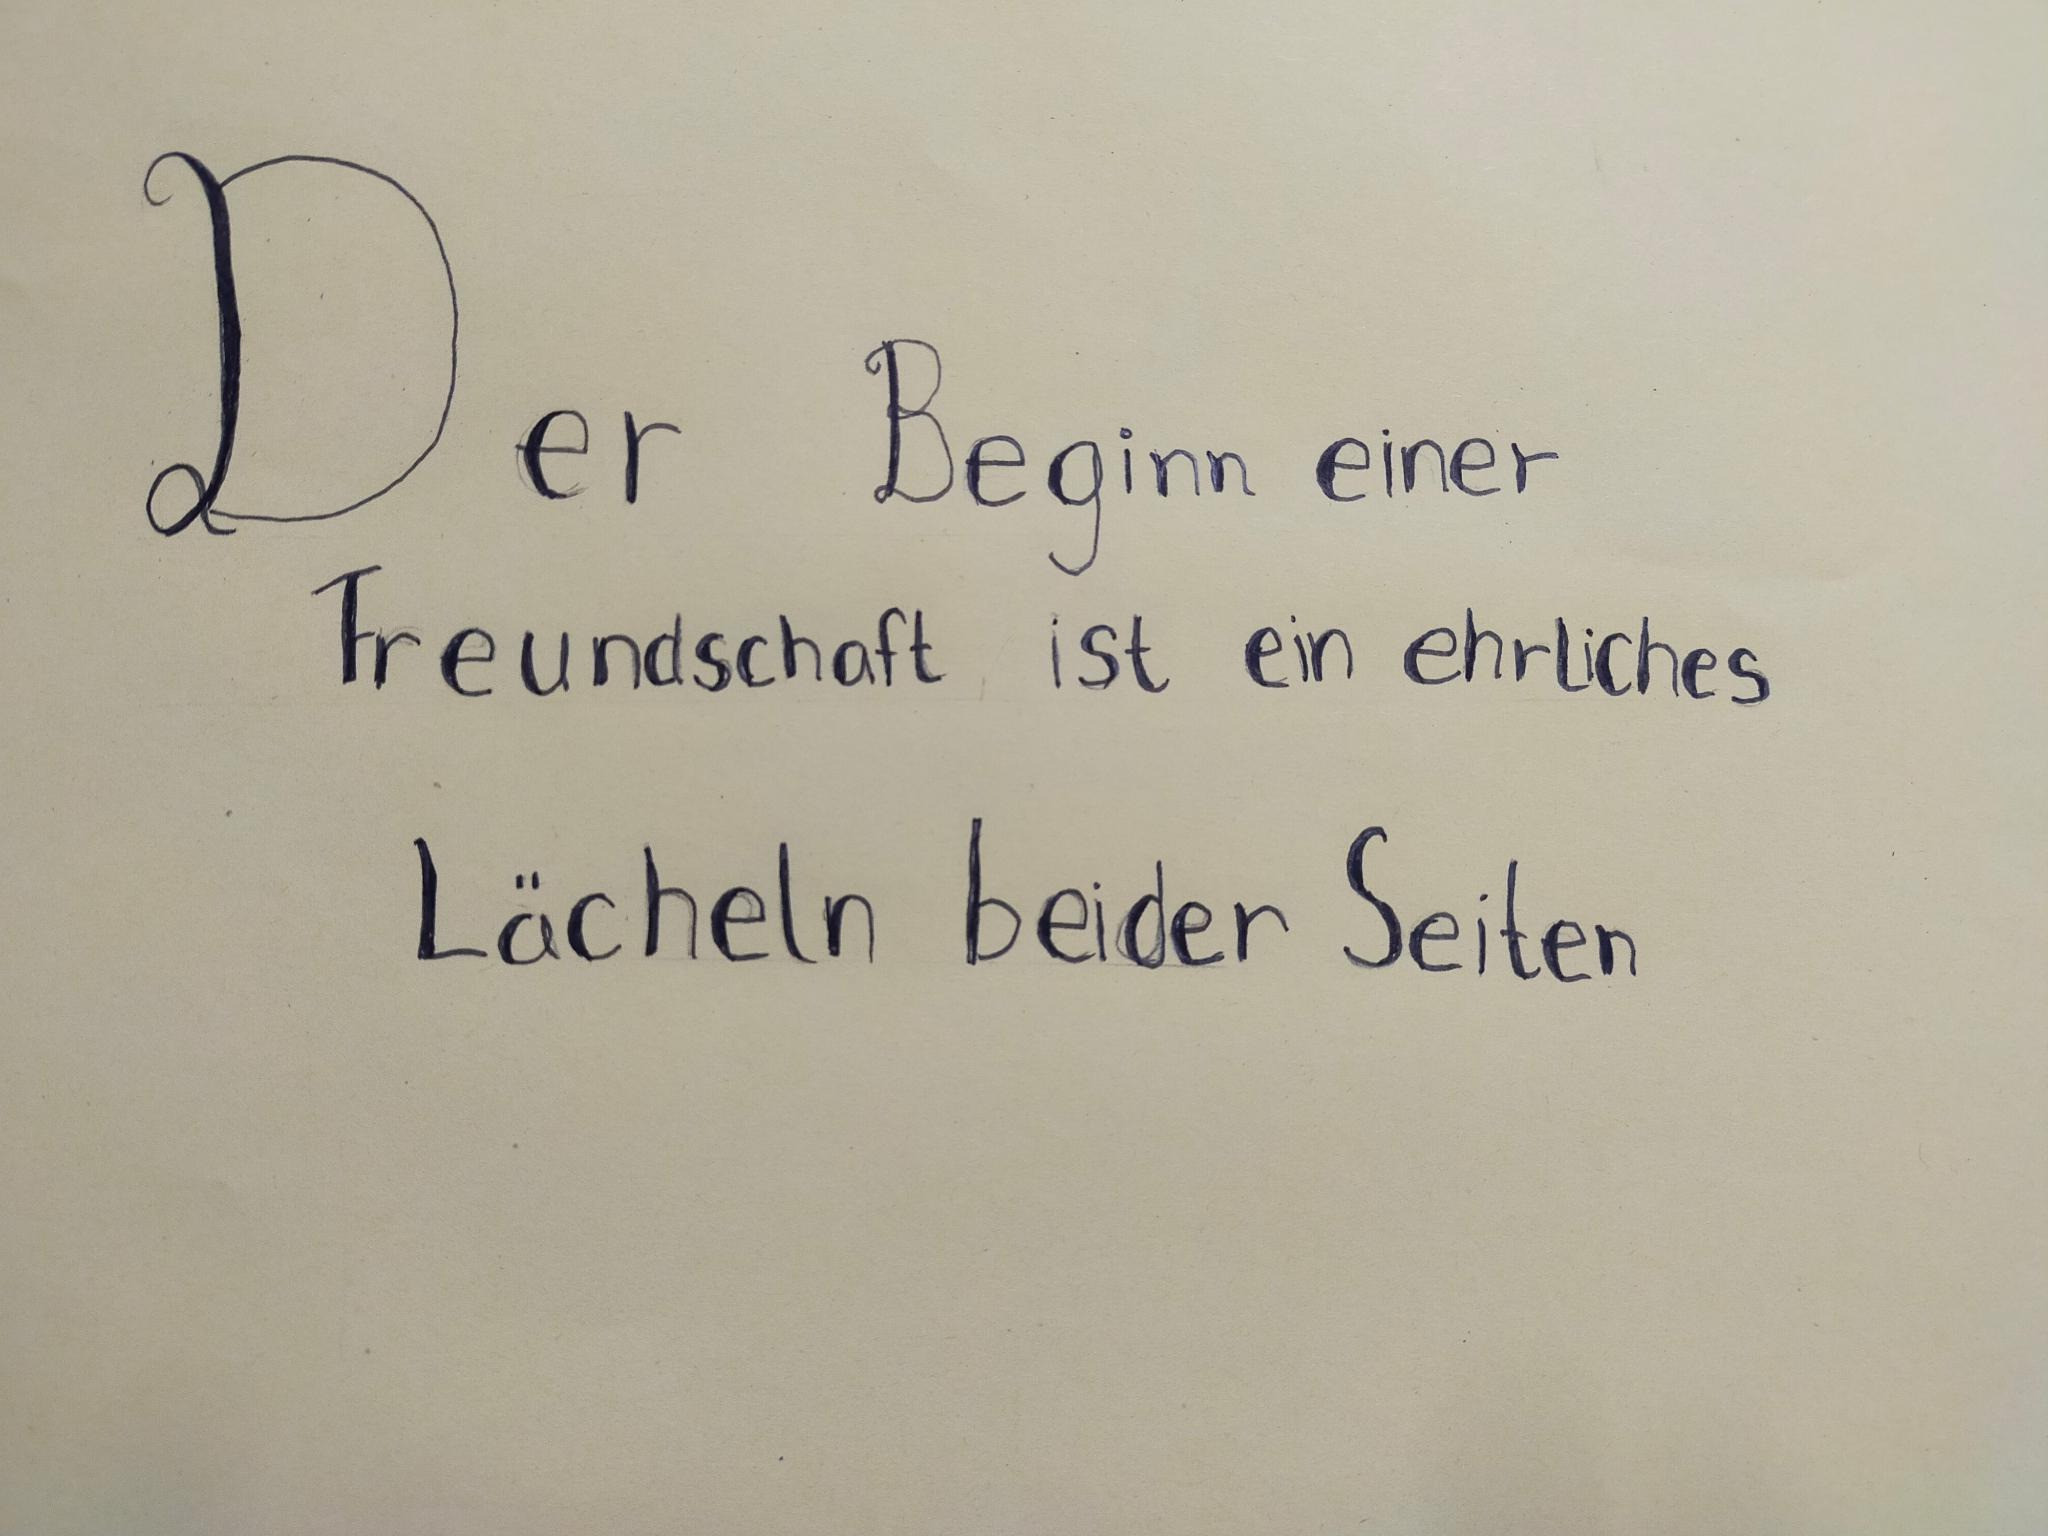 Der Beginn einer
Freundschaft ist ein ehrliches
Lächeln beider Seiten